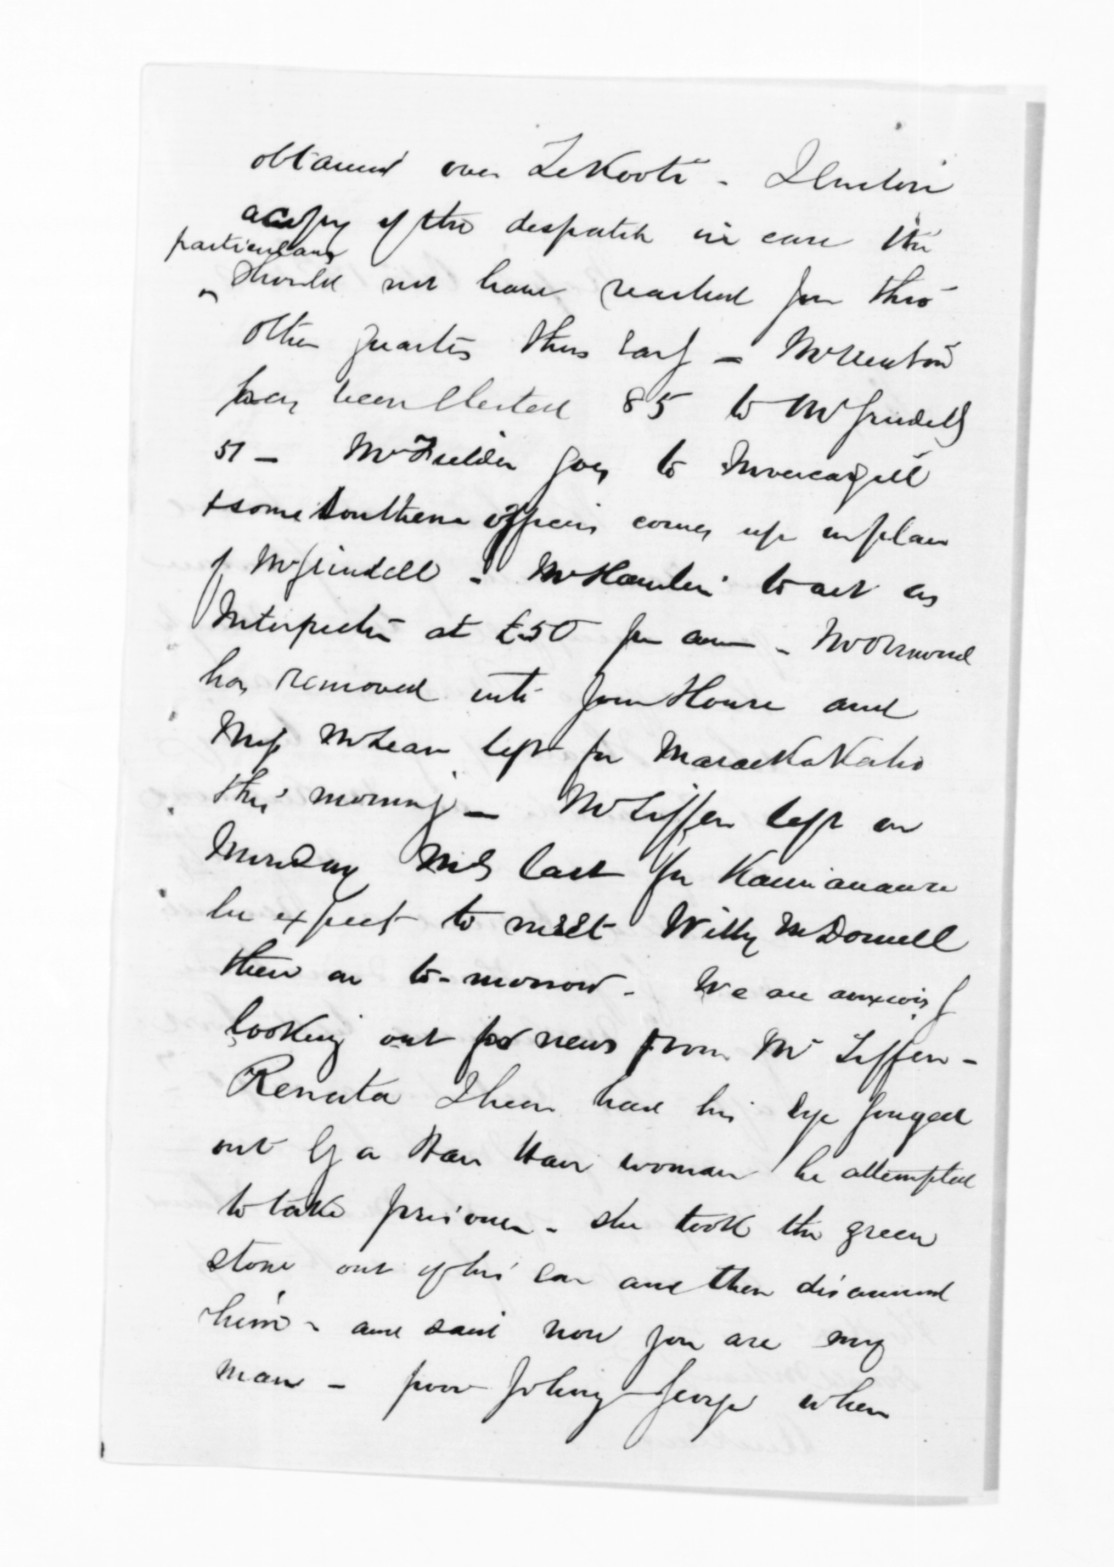 obtained over Te Kooti - I enclose
a copy of the despatch in case the
particulars
should not have reached you thro
other quarters thus early - Mr Newton
has been elected 85 to Mr Grindell
51 - Mr Fielder goes to Invercargill
& some Southern officer comes up in place
of Mr Grindell - Mr Hamlin to act as
Interpreter at £50 per ann - Mr Ormond
has removed into your House and
Miss McLean left for Maraekakaho
this morning - Mr Tiffen left on
Monday last for Kaimanawa
he expect to meet Willy McDonnell
there on to-morrow. We are anxiously
looking out for news from Mr Tiffen -
Renata I hear had his eye gouged
out by a Hau Hau woman he attempted
to take prisoner - she took the green
stone out of his ear and then disarmed
him - and said now you are my
man - poor Johnny George when